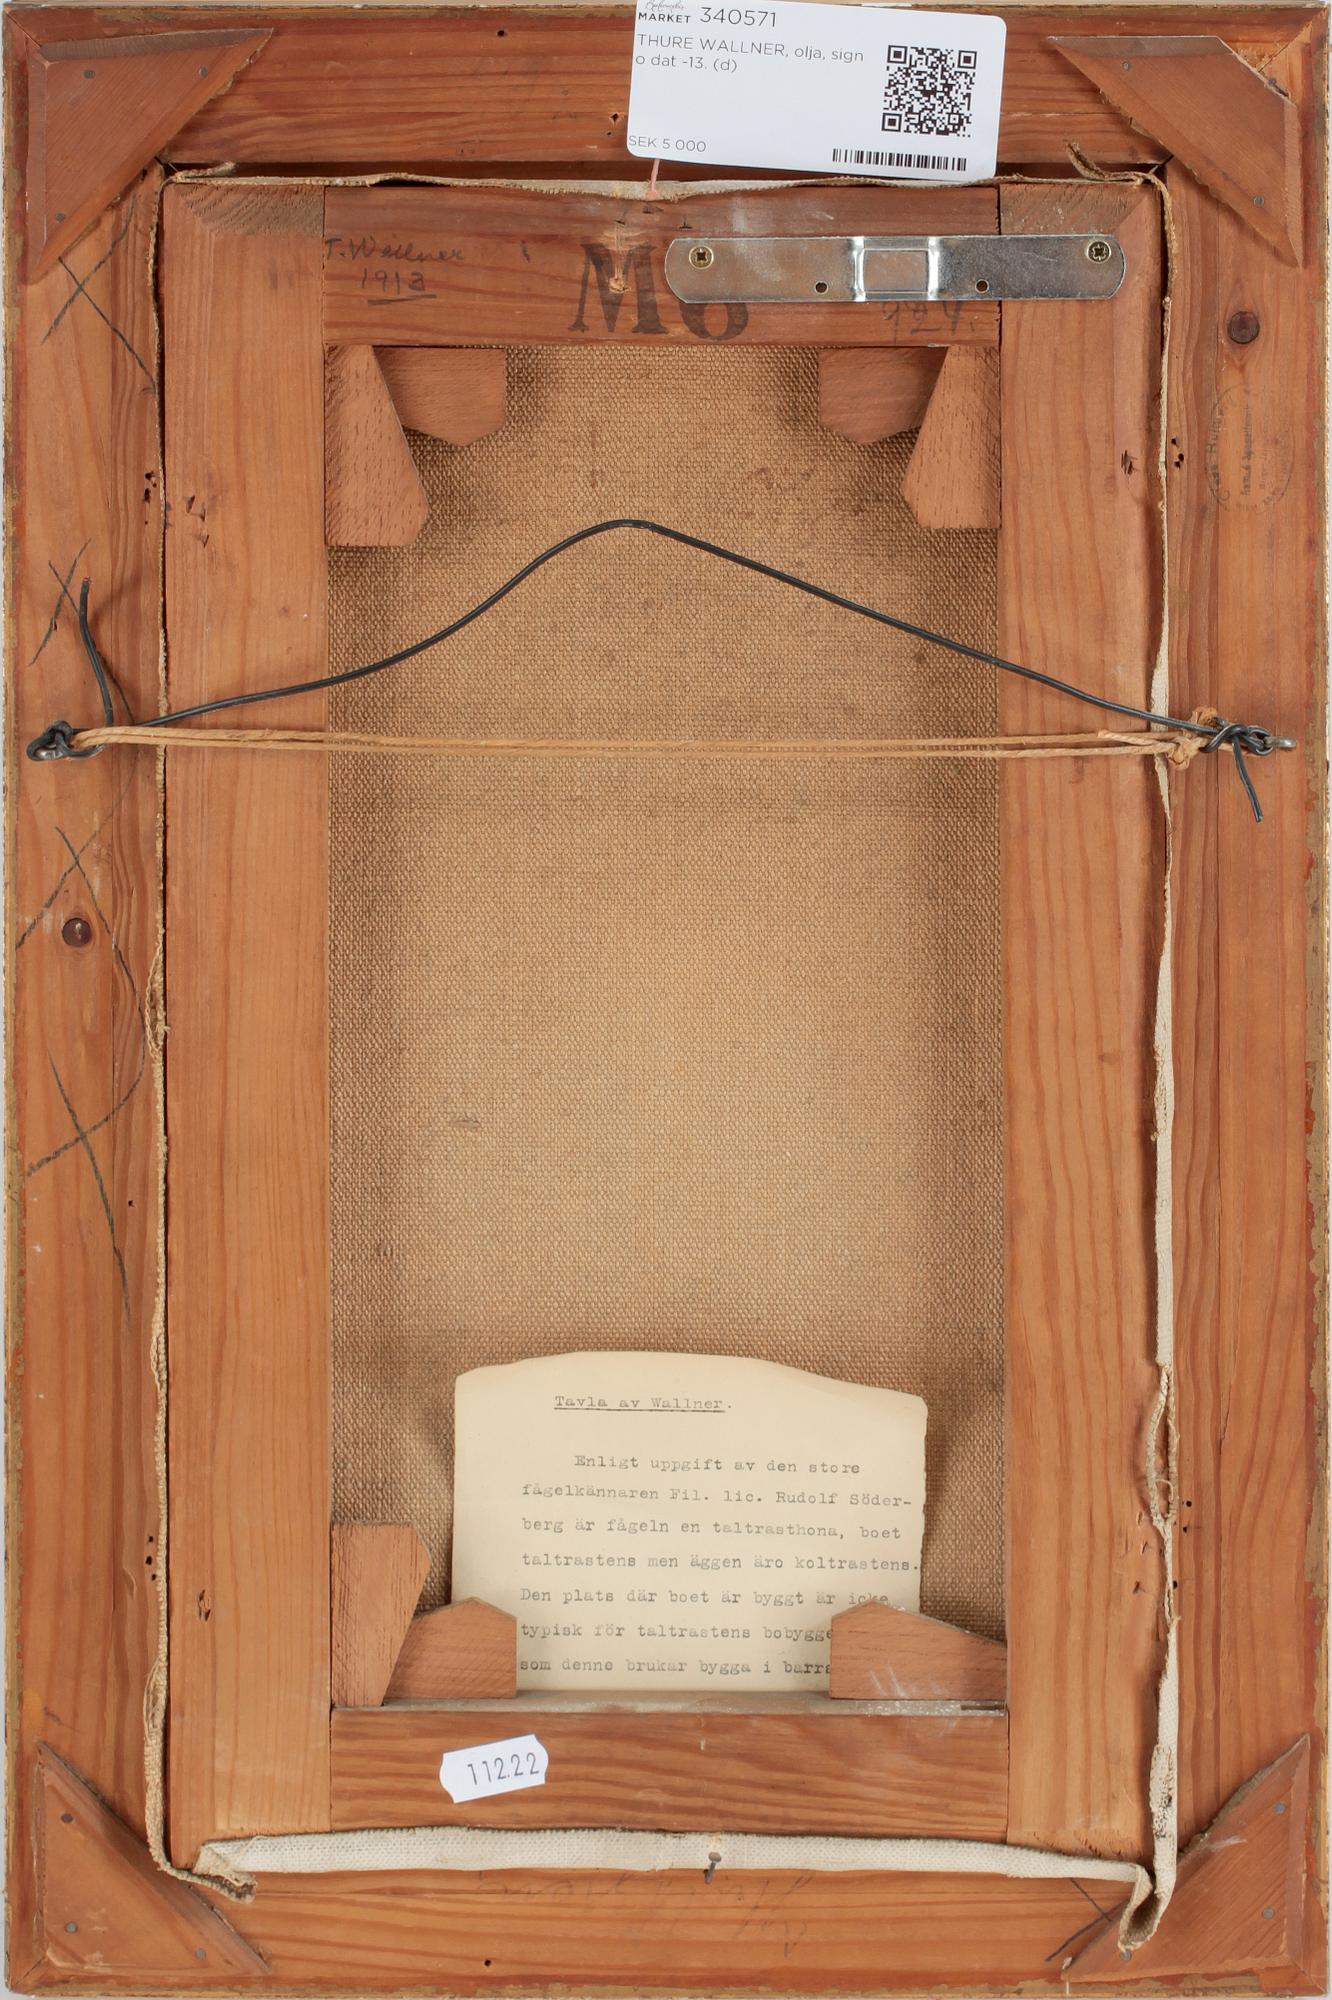 MARKET 340571
THURE WALLNER, olja, sign
o dat -13. (d)
SEK 5 000
T. Wallner
1913
M6
424.
Tavla av Wallner.
Enligt uppgift av den store
fågelkännaren Fil. lic. Rudolf Söder-
berg är fågeln en taltrasthona, boet
taltrastens men äggen äro koltrastens.
Den plats där boet är byggt är icke
typisk för taltrastens bobygge
som denne brukar bygga i barrs
112.22